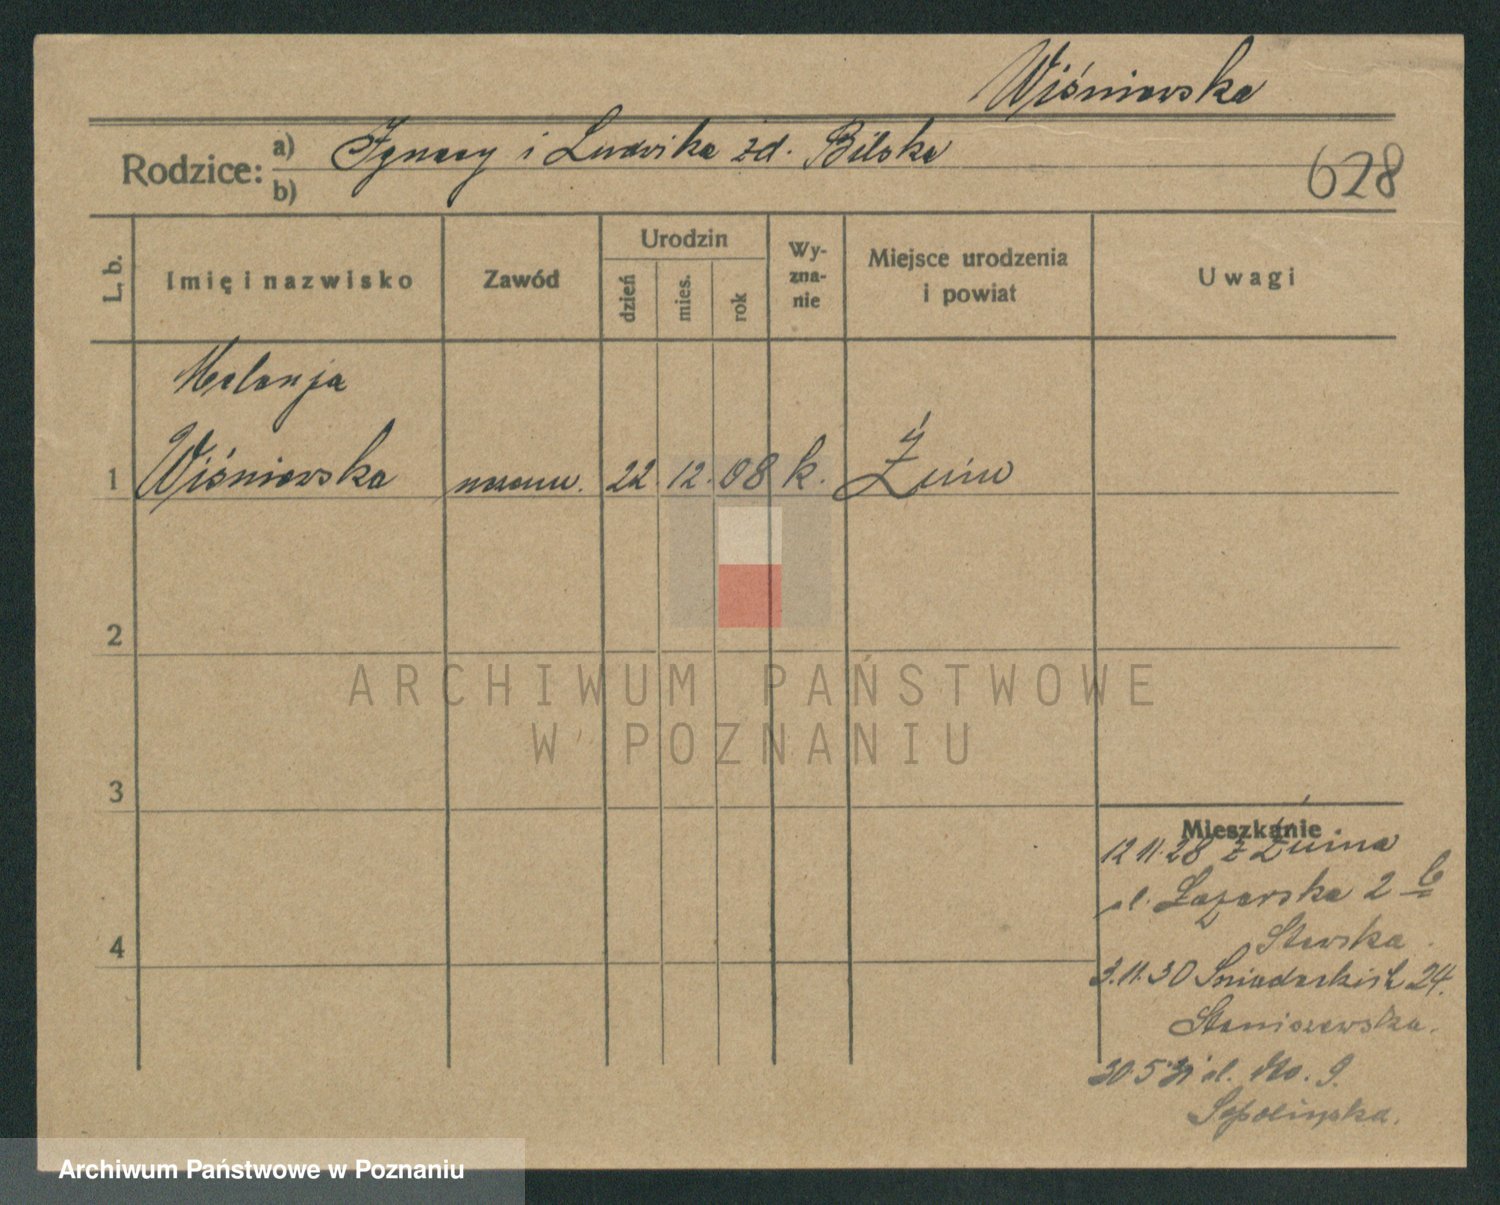 Wiśniewska
Rodzice: a) Ignacy i Ludwika zd. Bilska
b)
628
L. b.
Imię i nazwisko
Zawód
Urodzin
dzień
mies.
rok
Wy-
zna-
nie
Miejsce urodzenia
i powiat
Uwagi
Melanja
1 Wiśniewska 22. 12. 08 k. Żnin
2
3
4
Mieszkanie
12.11.28 z Żnina
ul. Łazarska 2 b
3.11.30 Śniadeckich 24.
Staniszewska.
30.5.31 ul. 9.
ARCHIWUM PAŃSTWOWE
W POZNANIU
Archiwum Państwowe w Poznaniu